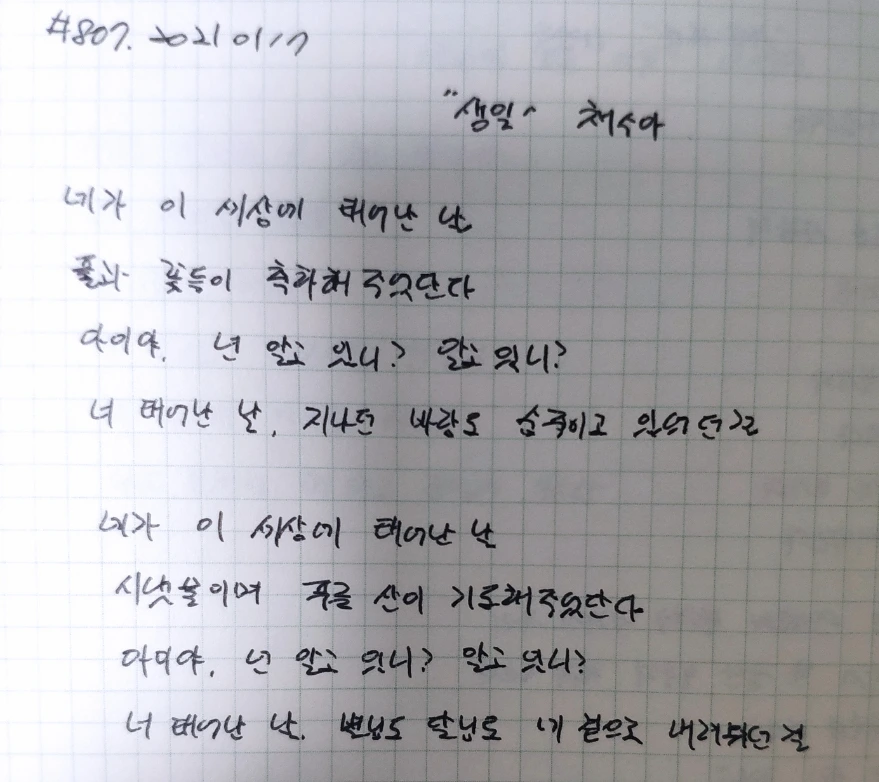 #807. 20210117
"생일" 채수아
네가 이 세상에 태어난 날
풀과 꽃들이 축하해 주었단다
아이야, 넌 알고 있니? 알고 있니?
너 태어난 날, 지나던 바람도 숨죽이고 있었던걸
네가 이 세상에 태어난 날
시냇물이며 푸른 산이 기도해주었단다
아이야, 넌 알고 있니? 알고 있니?
너 태어난 날, 별님도 달님도 네 곁으로 내려왔던 걸